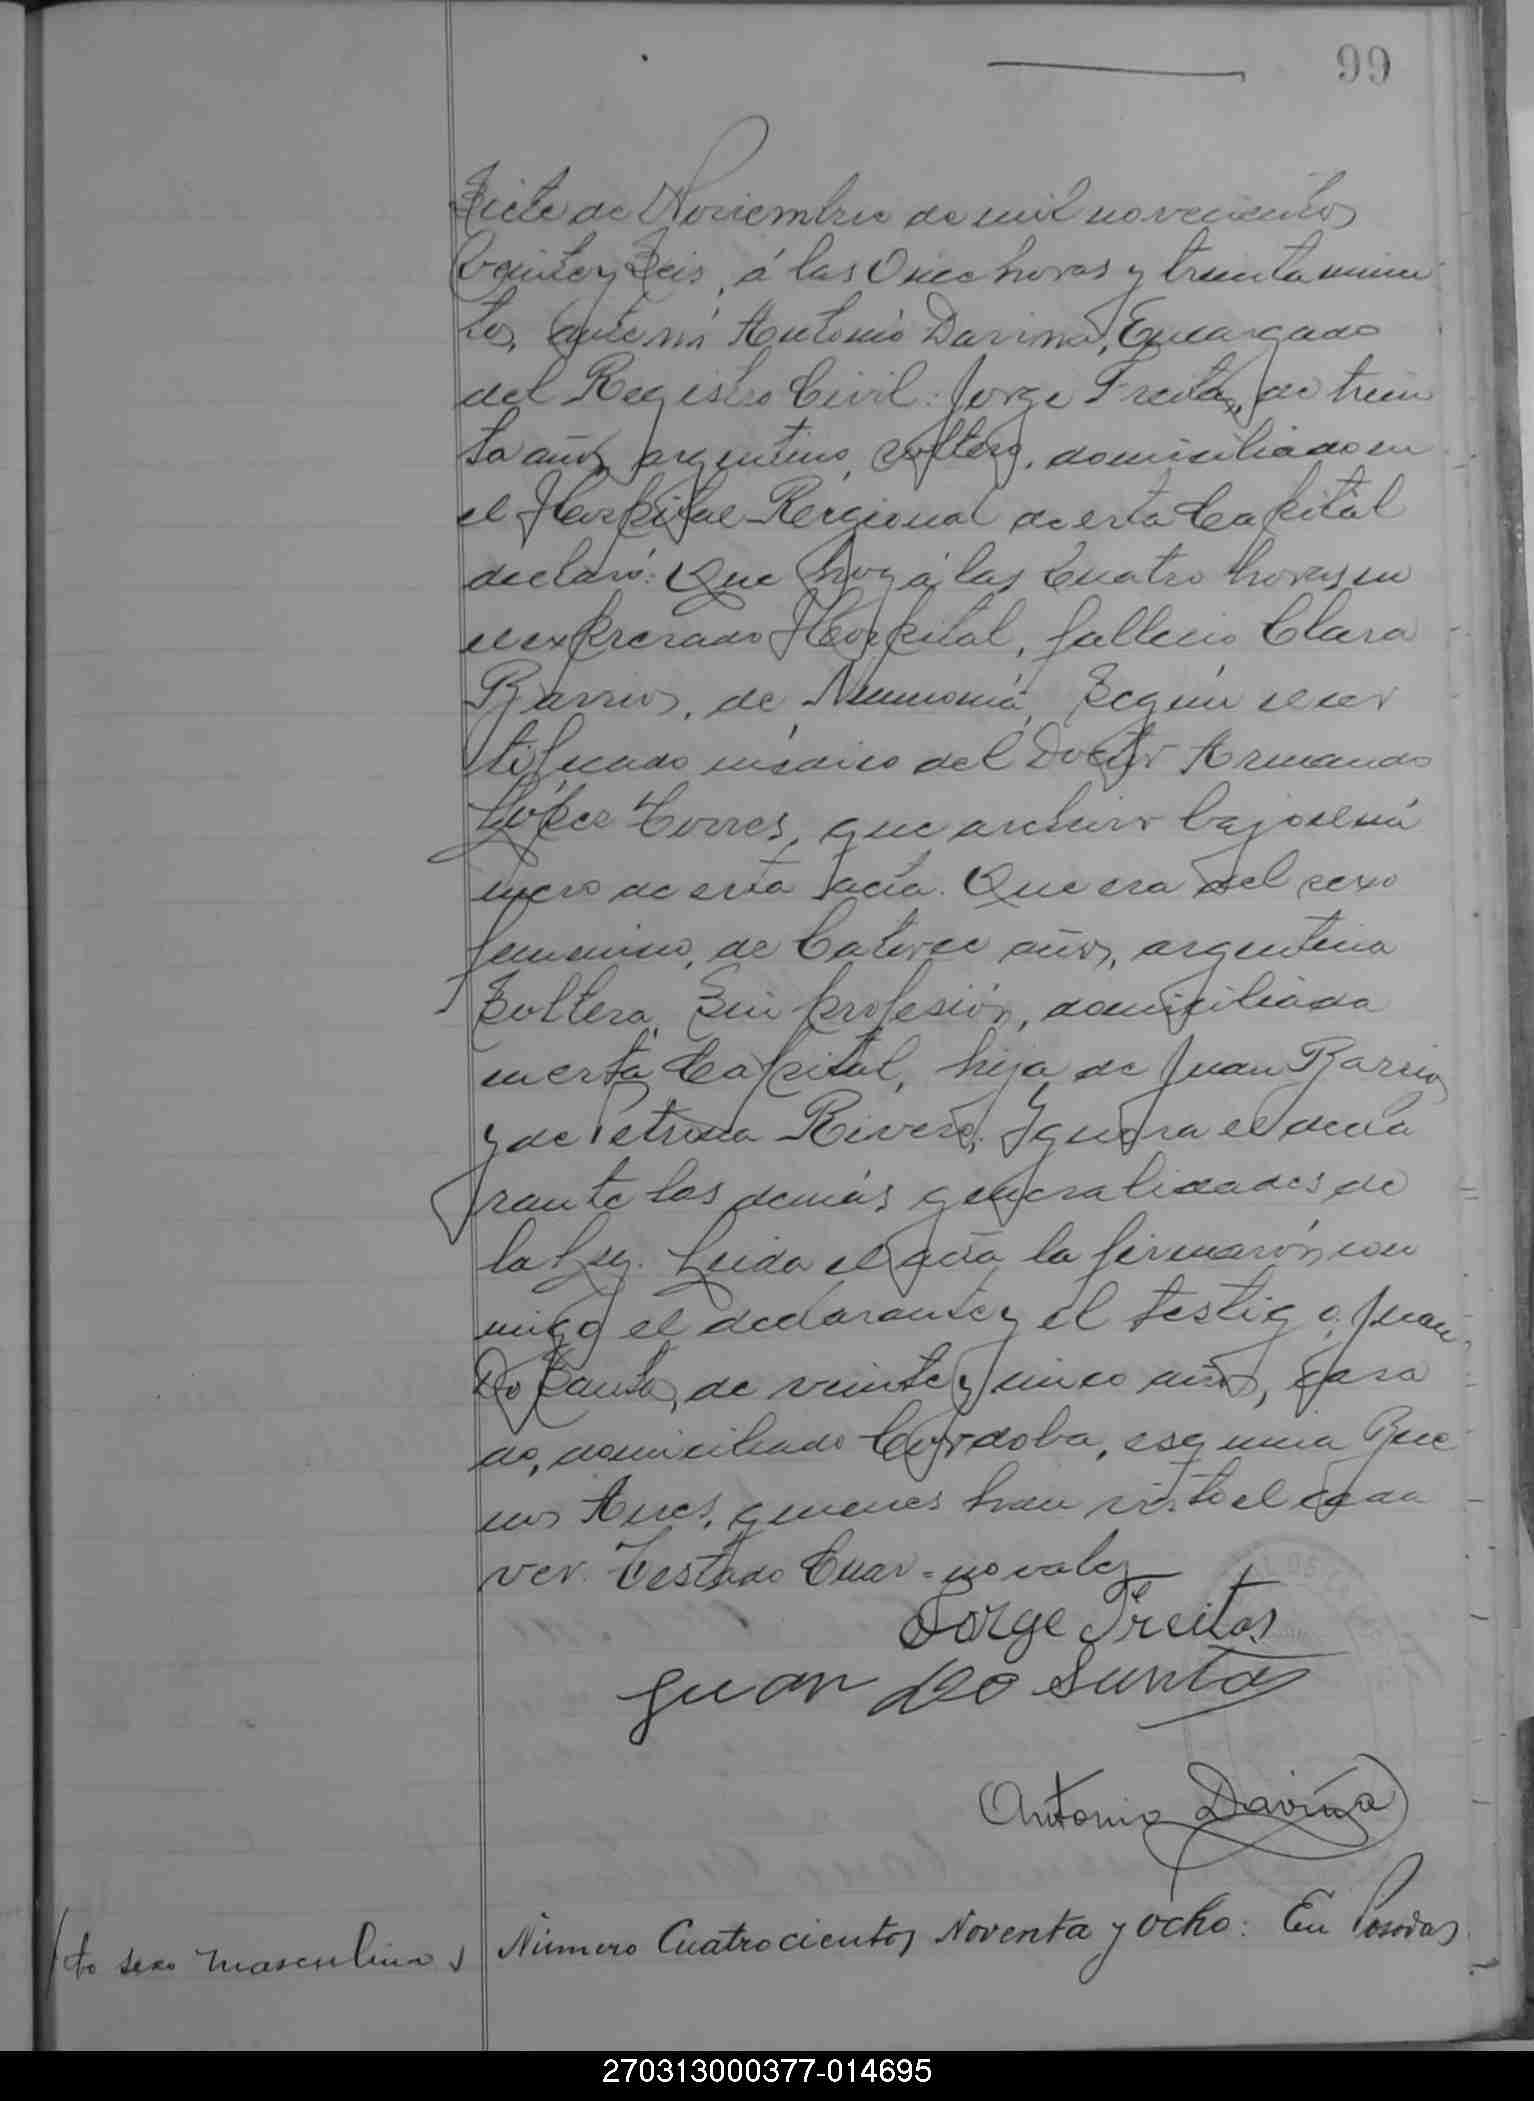 99
Siete de Noviembre de mil novecientos
veinte y Seis, á las Once horas y treinta minu
tos, ante mi Antonio Daviña, Encargado
del Registro Civil: Jorge Freitas, de trein
ta años, argentino, soltero, domiciliado en
el Hospital Regional de esta Capital
declaró: Que hoy á las Cuatro horas, en
el expresado Hospital, falleció Clara
Barrios, de Neumonia, Según el cer
tificado médico del Doctor Armando
López Torres, que archivo bajo el nú
mero de esta acta. Que era del sexo
femenino, de Catorce años, argentina
Soltera, Sin profesión, domiciliada
en esta Capital, hija de Juan Barrios
y de Petrona Rivero. Ignora el decla
rante las demás generalidades de
la Ley. Leida el acta la firmarón con
migo el declarante y el testigo: Juan
Do Santos, de veinte y cinco años, casa
do, domiciliado Córdoba, esquina Bue
nos Aires, quienes han visto el cada
ver. Testado Cuar=no vale
Jorge Freitas
Juan Do Santos
Antonio Daviña
to sexo masculino
Número Cuatrocientos Noventa y ocho: En Posadas
270313000377-014695